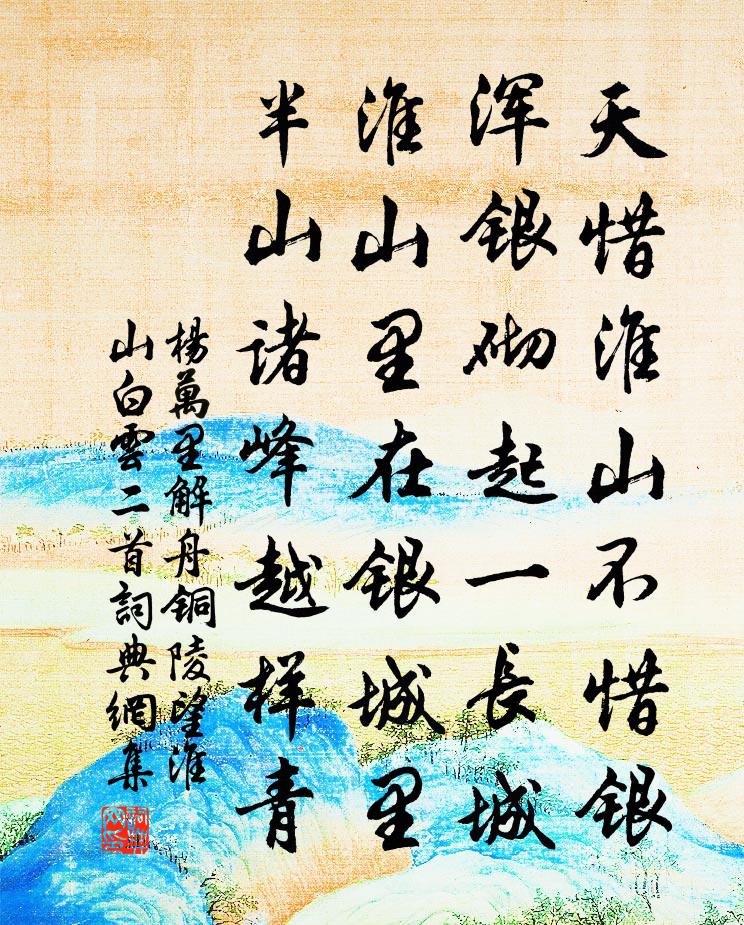 天惜淮山不惜银
浑银砌起一長城
淮山里在银城里
半山诸峰越样青
楊萬里解舟铜陵望淮
山白雲二首詞典網集